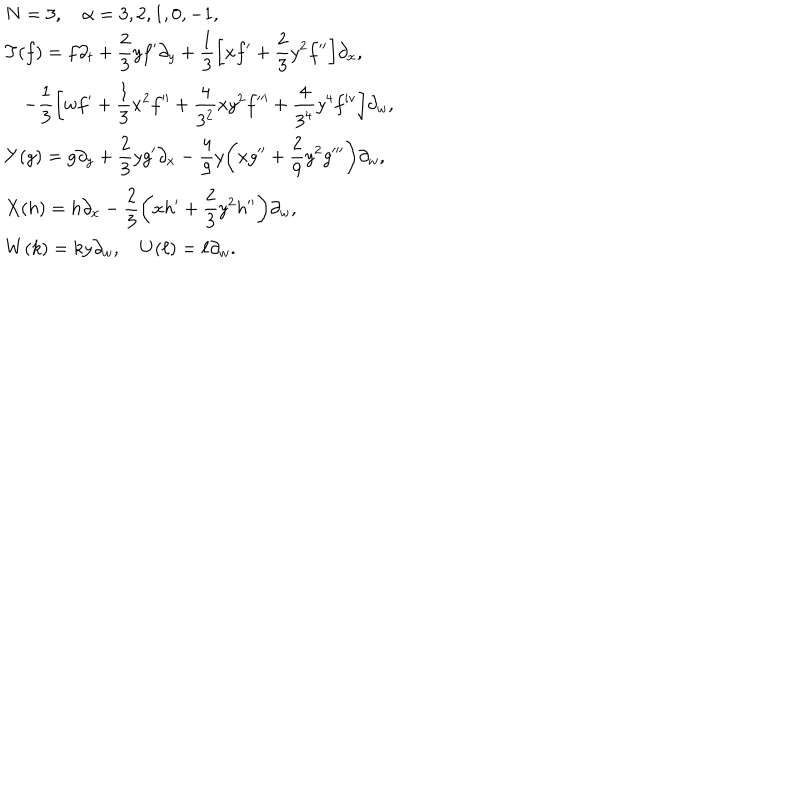 N = 3, α = 3, 2, 1, 0, −1,
T(f) = f∂_t + \frac{2}{3} y f′∂_y + \frac{1}{3}[x f′ + \frac{2}{3} y^2 f″]∂_x,
−\frac{1}{3}[w f′ + \frac{1}{3} x^2 f″ + \frac{4}{3^2} x y^2 f‴ + \frac{4}{3^4} y^4 f^{iv}]∂_w,
Y(g) = g∂_y + \frac{2}{3} y g′∂_x − \frac{4}{9} y(x g″ + \frac{2}{9} y^2 g‴)∂_w,
X(h) = h∂_x − \frac{2}{3}(x h′ + \frac{2}{3} y^2 h″)∂_w,
W(k) = k y∂_w, U(ℓ) = ℓ∂_w.